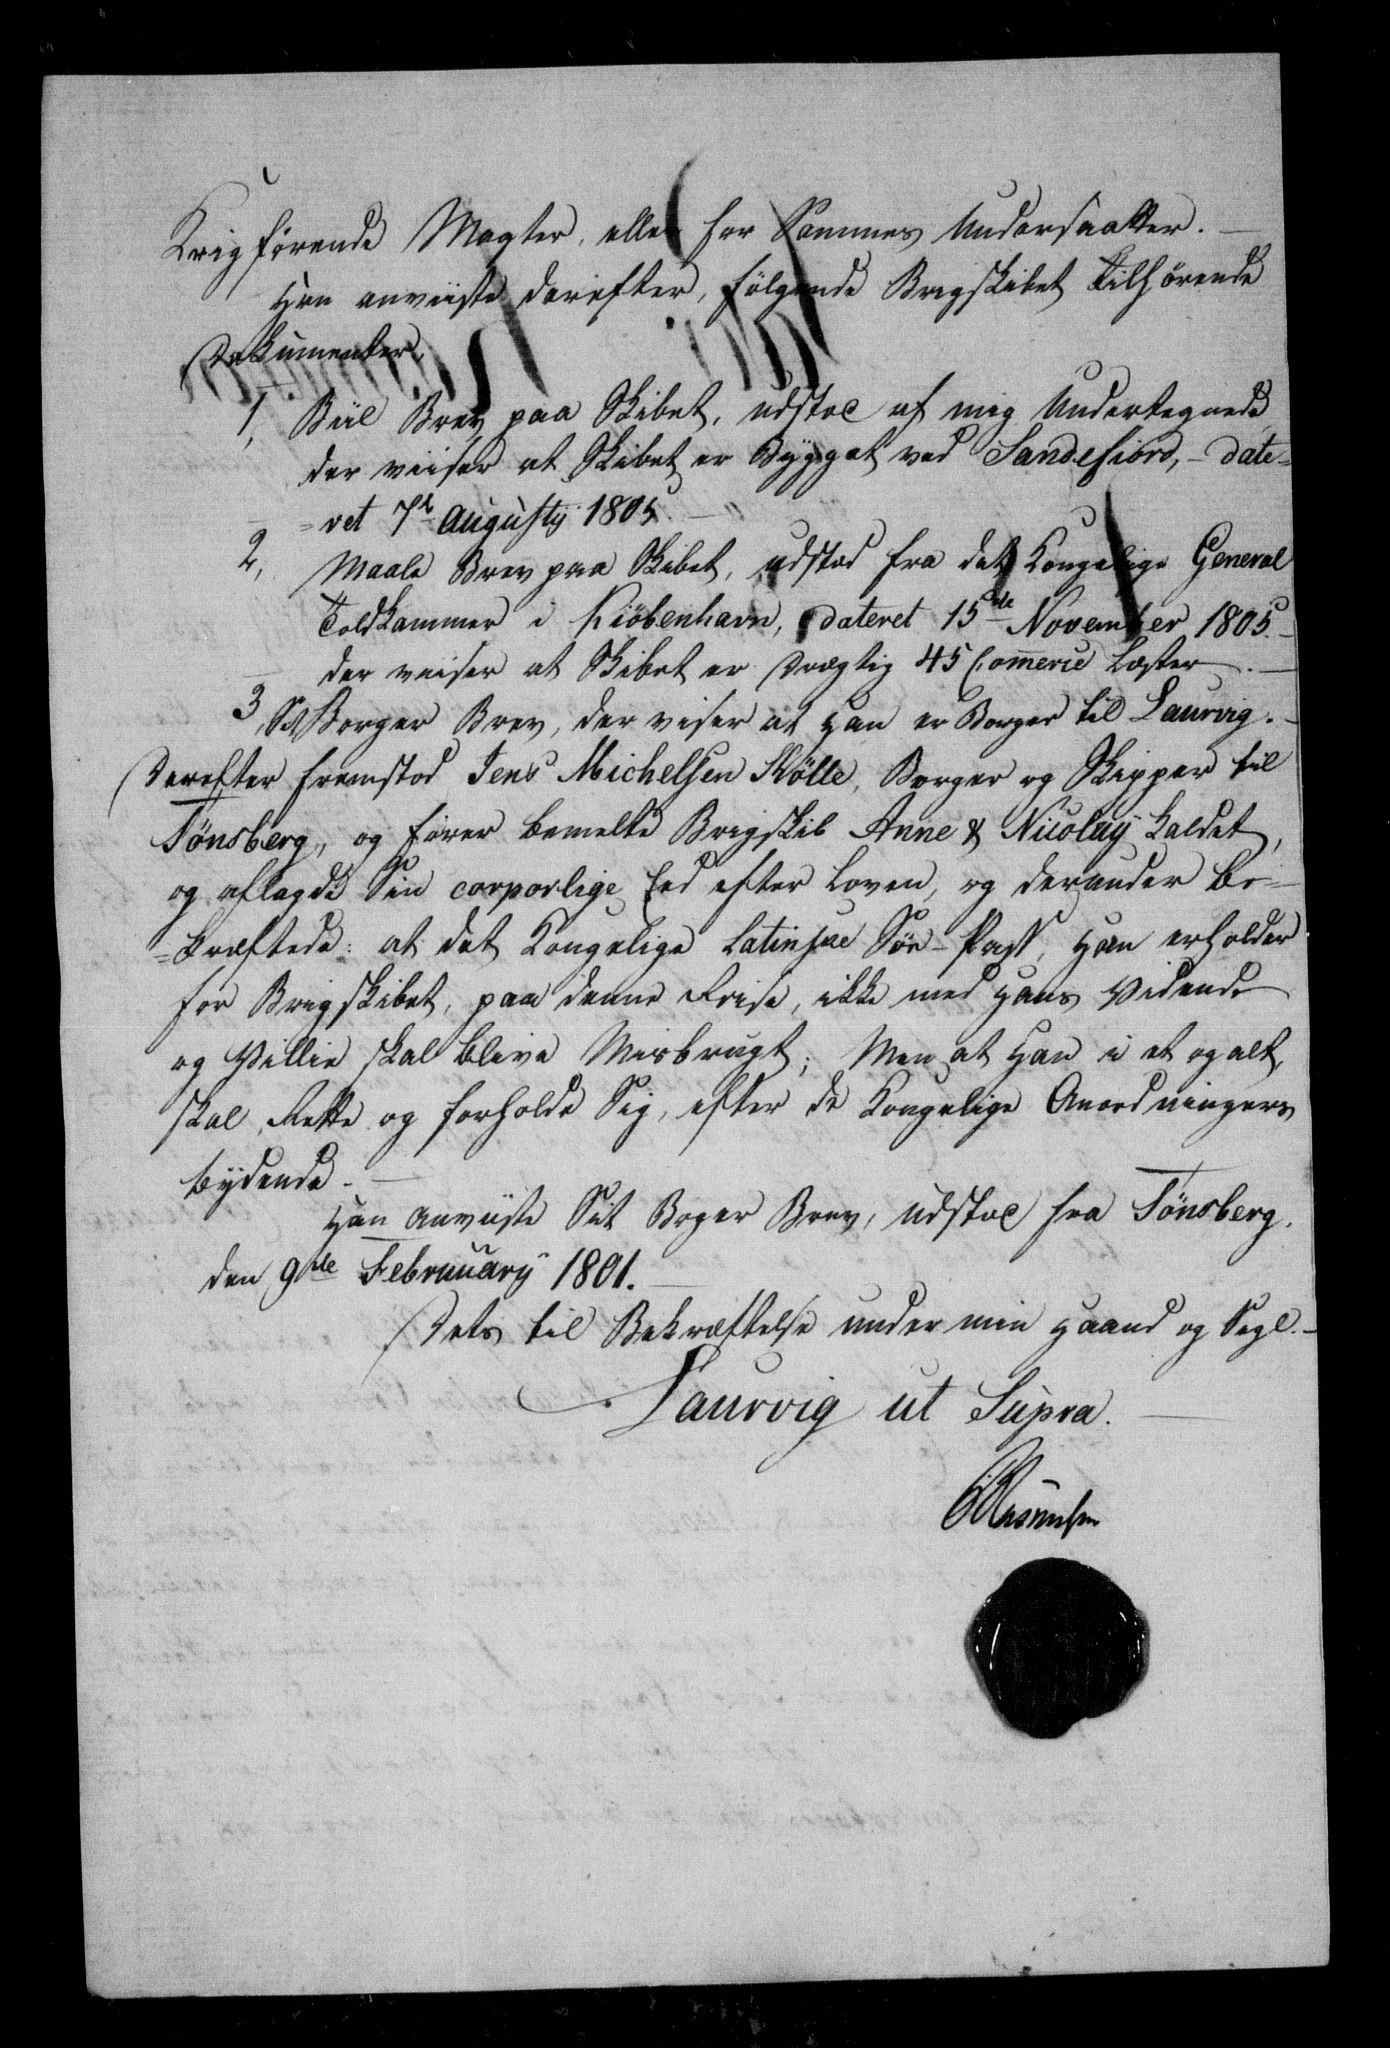 Krigförende Magter, eller for Sammes Undersaatter. —
Han anviiste derefter, fölgende Brigskibet Tilhörende
Dokumenter,
1, Biil Brev paa Skibet, udstæd af mig Undertegnede,
der viiser at Skibet er Bygget ved Sandefiord, – date=
=ret 7de Augusty 1805. —
2, Maale Brev paa Skibet, udstæd fra det Kongelige General
Toldkammer i Kiöbenhavn, dateret 15de November 1805. –
der viiser at Skibet er Drægtig 45 Commerce Læster. —
3, Sit Borger Brev, der viser at Han er Borger til Laurvig. –
Derefter fremstod Jens Michelsen Kölle, Borger og Skipper til
Tönsberg, og förer bemelte Brigskib Anne & Nicolay kaldet,
og aflagde Sin corporlige Eed efter Loven, og derunder be=
=kræftede: at det Kongelige Latinske Söe-Pass, Han erholder
for Brigskibet, paa denne Reise, ikke med Hans Vidende
og Villie skal blive Misbrugt; Men at Han i et og alt,
skal Rette og forholde Sig, efter de Kongelige Anordningers
bydende. —
Han anviiste Sit Borger Brev, udstæd fra Tönsberg,
den 9de February 1801. —
Dets til Bekræftelse under min Haand og Segl. –
Laurvig ut Supra. —